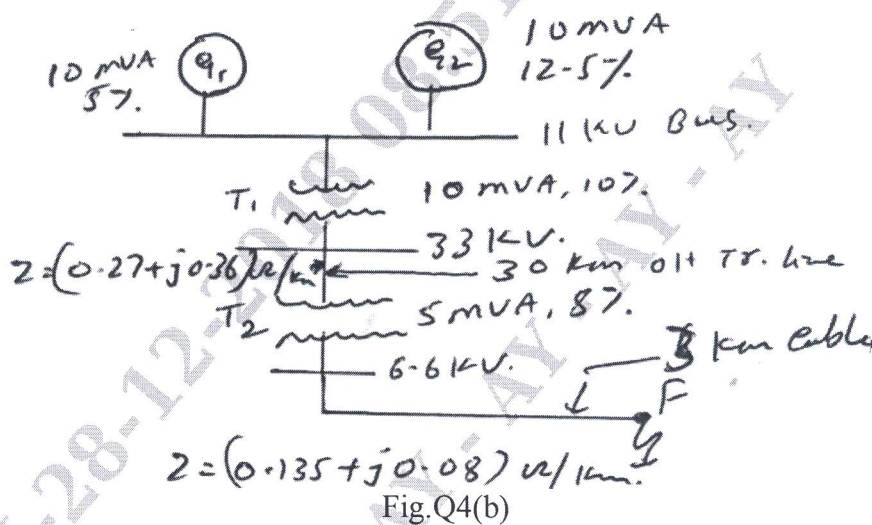 10 MVA
5%.
G1
G2
10 MVA
12.5%.
11 KV Bus.
T1
10 MVA, 10%.
33 KV.
Z=(0.27+j0.36)Ω/km
30 km OH Tr. line
T2
5 MVA, 8%.
6.6 KV.
3 km Cable
F
Z=(0.135+j0.08) Ω/km.
Fig.Q4(b)
28-12-2018 08:51
AY - AY
AY - AY